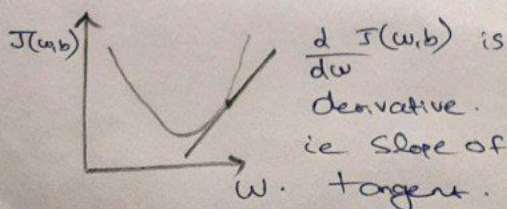 J(w,b)
w.
d/dw J(w,b) is
derivative.
ie Slope of
tangent.